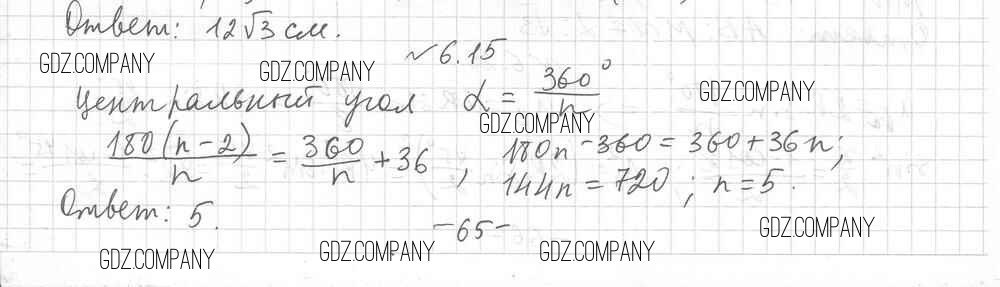 Ответ: 12√3 см.
№6.15
GDZ.COMPANY GDZ.COMPANY
Центральный угол α = 360°/n
GDZ.COMPANY
GDZ.COMPANY
180(n-2)/n = 360/n + 36, 180n - 360 = 360 + 36n;
144n = 720; n = 5.
Ответ: 5.
-65-
GDZ.COMPANY
GDZ.COMPANY GDZ.COMPANY GDZ.COMPANY